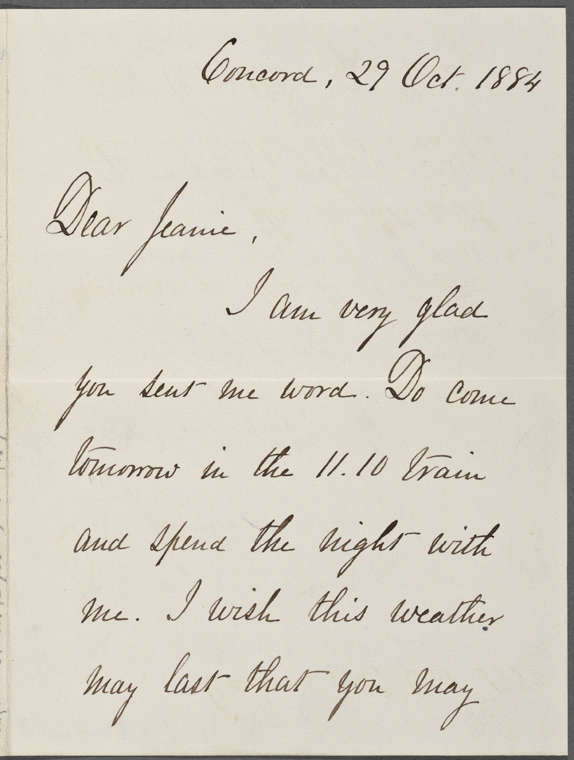 Concord, 29 Oct. 1884
Dear Jeanie,
I am very glad
you sent me word. Do come
tomorrow in the 11.10 train
and spend the night with
me. I wish this weather
may last that you may